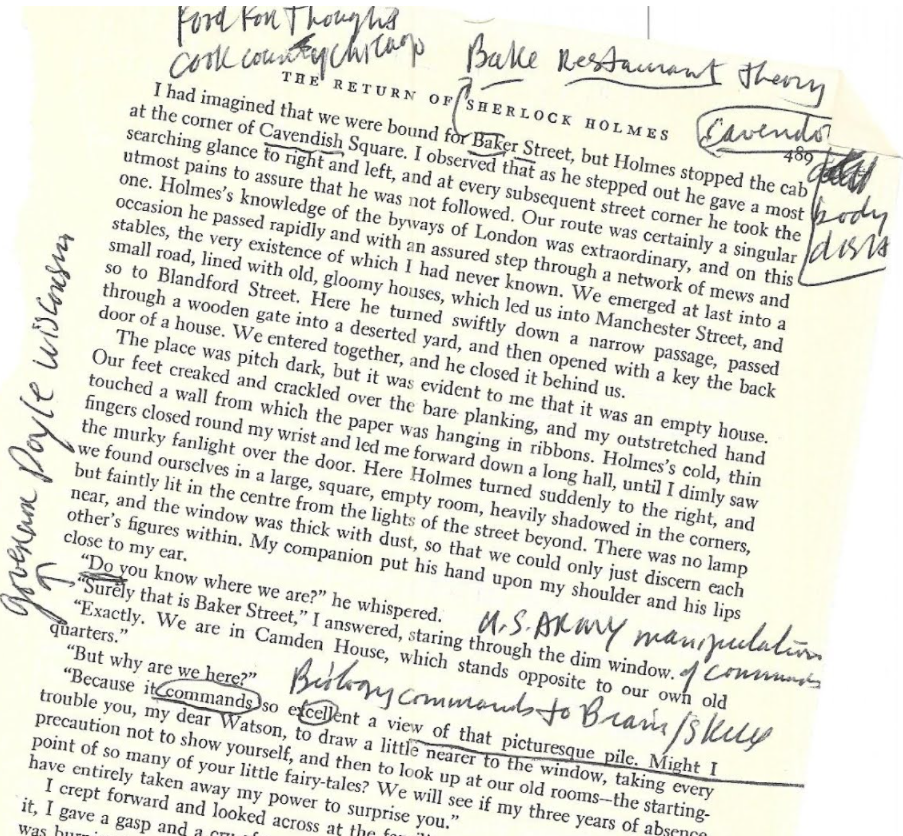 Food For Thought
Cook County Chicago
Bake Restaurant theory
THE RETURN OF SHERLOCK HOLMES
Cavendo
489
body
I had imagined that we were bound for Baker Street, but Holmes stopped the cab
at the corner of Cavendish Square. I observed that as he stepped out he gave a most
searching glance to right and left, and at every subsequent street corner he took the
utmost pains to assure that he was not followed. Our route was certainly a singular
one. Holmes's knowledge of the byways of London was extraordinary, and on this
occasion he passed rapidly and with an assured step through a network of mews and
stables, the very existence of which I had never known. We emerged at last into a
small road, lined with old, gloomy houses, which led us into Manchester Street, and
so to Blandford Street. Here he turned swiftly down a narrow passage, passed
through a wooden gate into a deserted yard, and then opened with a key the back
door of a house. We entered together, and he closed it behind us.
The place was pitch dark, but it was evident to me that it was an empty house.
Our feet creaked and crackled over the bare planking, and my outstretched hand
touched a wall from which the paper was hanging in ribbons. Holmes's cold, thin
fingers closed round my wrist and led me forward down a long hall, until I dimly saw
the murky fanlight over the door. Here Holmes turned suddenly to the right, and
we found ourselves in a large, square, empty room, heavily shadowed in the corners,
but faintly lit in the centre from the lights of the street beyond. There was no lamp
near, and the window was thick with dust, so that we could only just discern each
other's figures within. My companion put his hand upon my shoulder and his lips
close to my ear.
Governor Doyle Wisconsin
"Do you know where we are?" he whispered.
"Surely that is Baker Street," I answered, staring through the dim window.
U.S. ARMY manipulation
of commands
"Exactly. We are in Camden House, which stands opposite to our own old
quarters."
"But why are we here?"
Biology commands to Brain/
"Because it commands so excellent a view of that picturesque pile. Might I
trouble you, my dear Watson, to draw a little nearer to the window, taking every
precaution not to show yourself, and then to look up at our old rooms—the starting-
point of so many of your little fairy-tales? We will see if my three years of absence
have entirely taken away my power to surprise you."
I crept forward and looked across at the
it, I gave a gasp and a
was